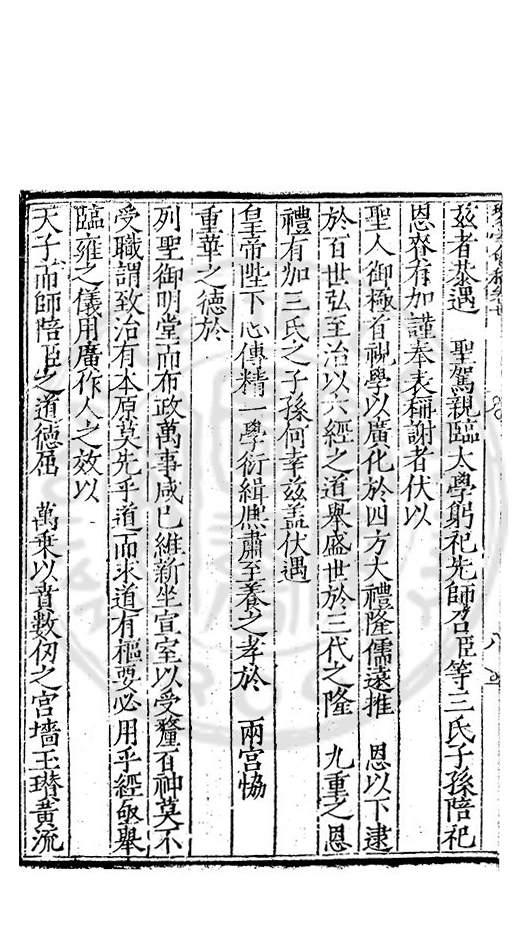 茲者恭遇　聖駕親臨太學躬祀先師召臣等三氏子孫陪祀
恩賚有加謹奉表稱謝者伏以
聖人御極首視學以廣化於四方大禮隆儒遠推　恩以下逮
於百世弘至治以六經之道舉盛世於三代之隆　九重之恩
禮有加三氏之子孫何幸茲蓋伏遇
皇帝陛下心傳精一學衍緝熈肅至養之孝於　兩宮恊
重華之德於
列聖御明堂而布政萬事咸已維新坐宣室以受釐百神莫不
受職謂致治有本原莫先乎道而求道有樞要必用乎經亟舉
臨雍之儀用廣作人之效以
天子而師陪臣之道德屈　萬乗以賁數仞之宮墻王瓚黃流